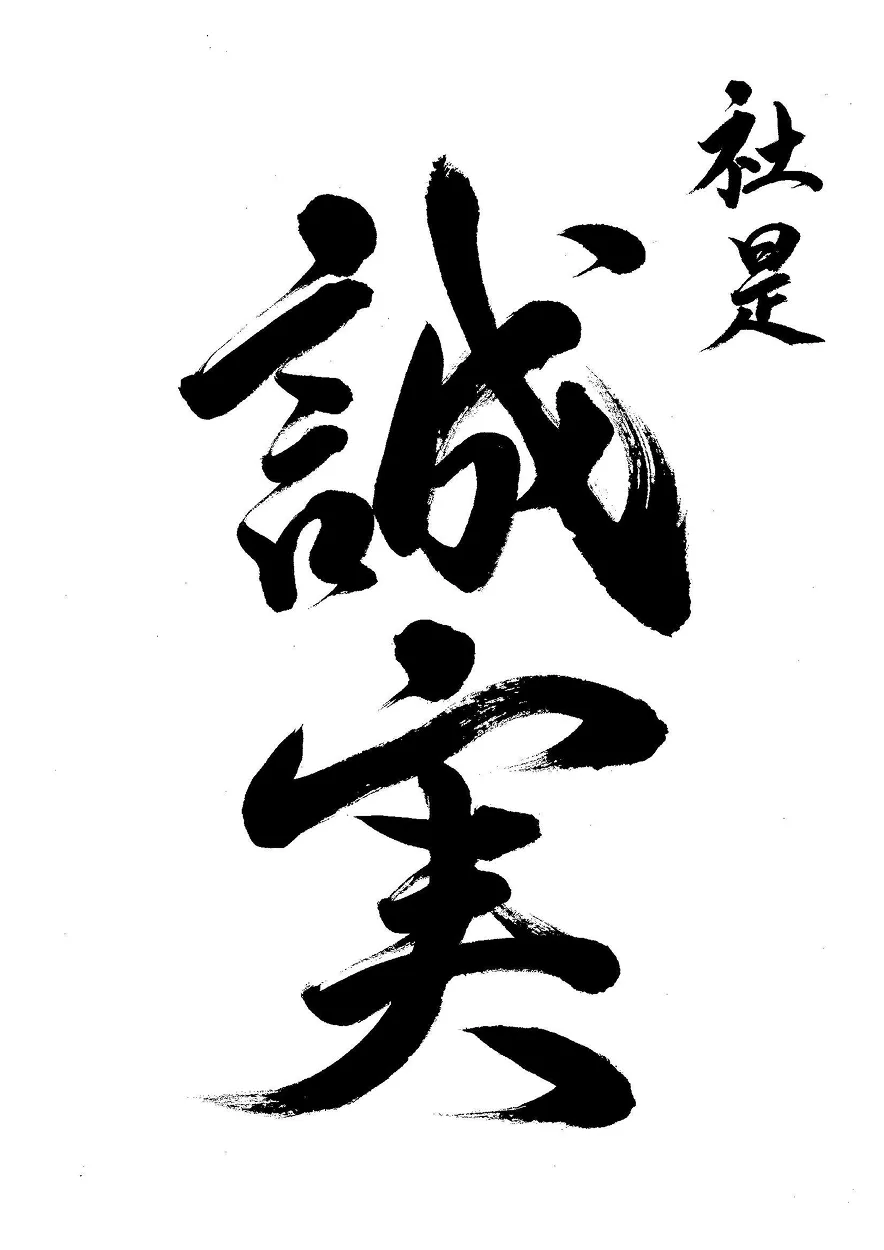 社是
誠実